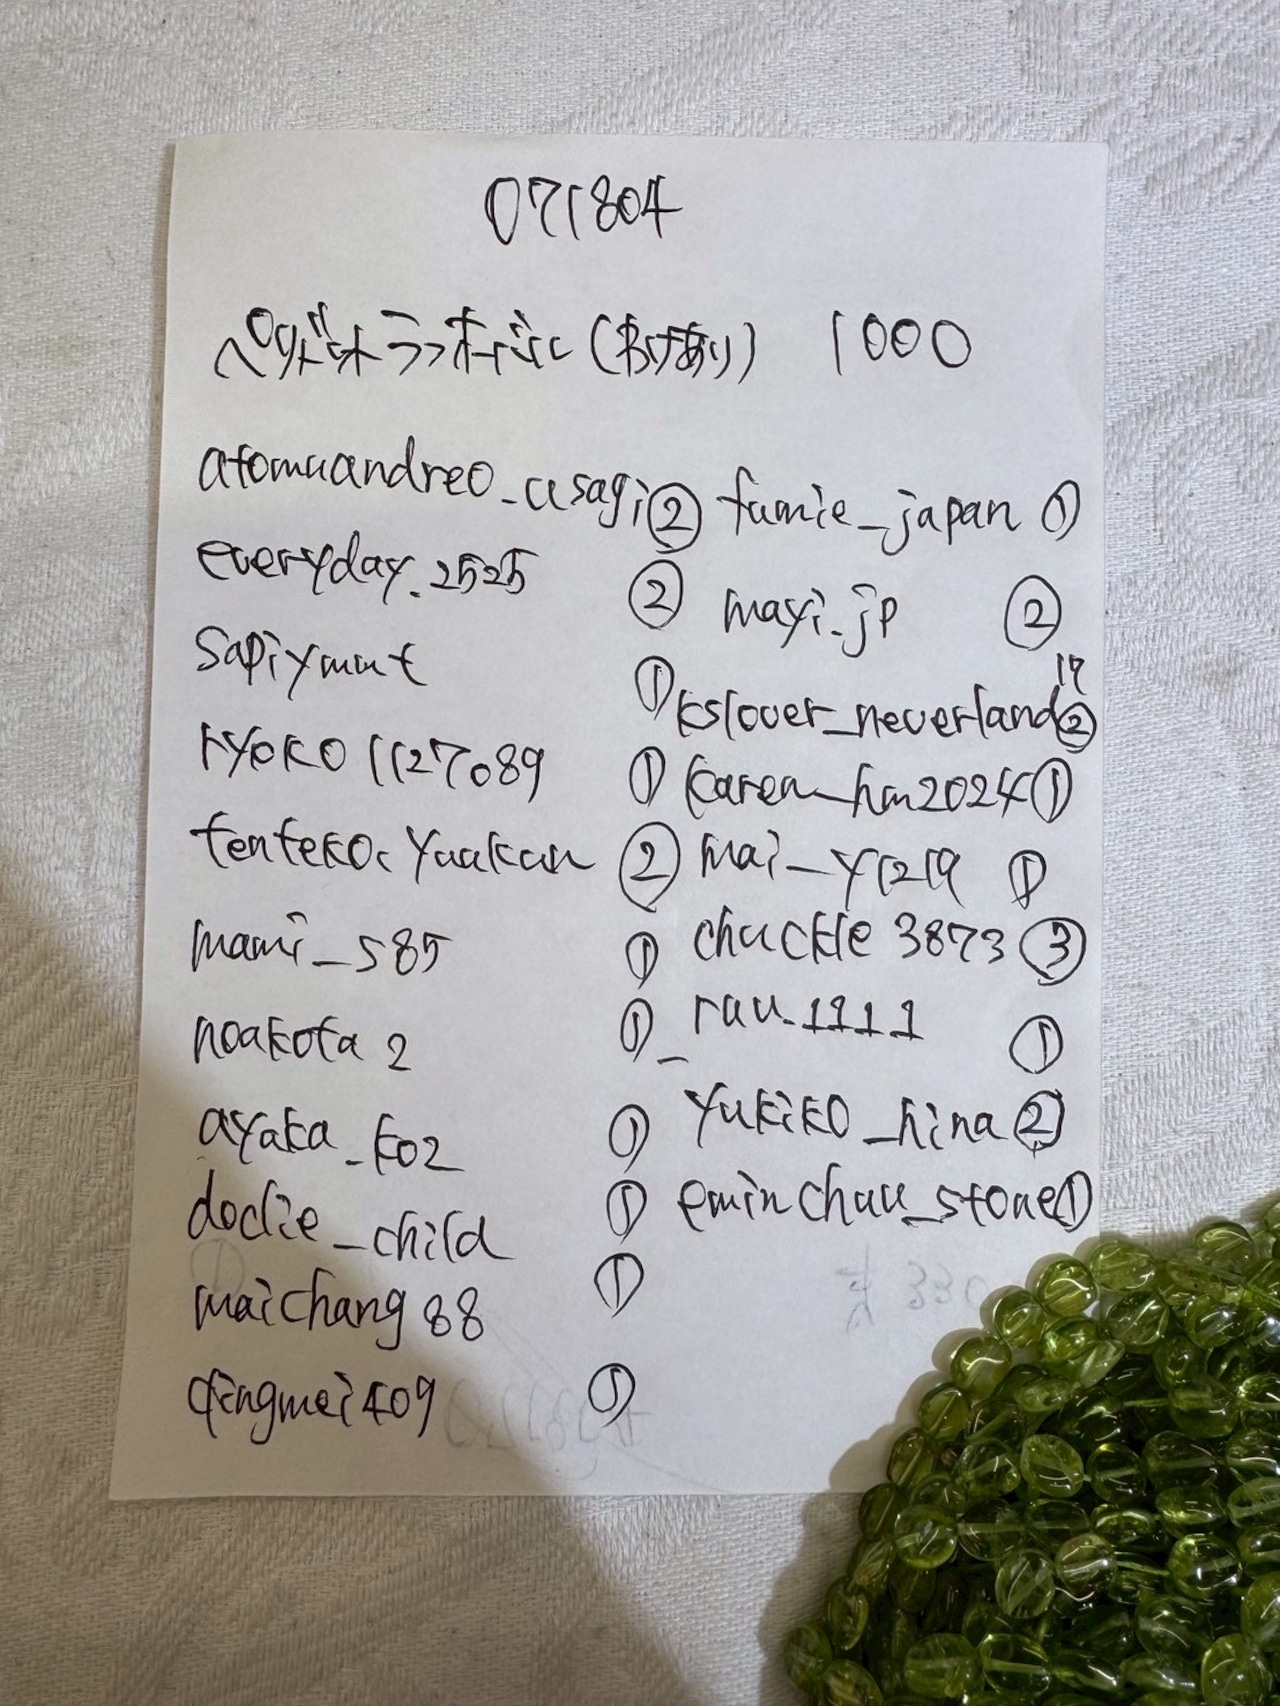 071804
ペリドットラフボール(わけあり) 1000
atomuandreo_usagi ②
everyday.2525 ②
sapiymmt ①
ryoko1127089 ①
tenteko.yuukun ②
mami_585 ①
noakota2 ①
ayaka_k02 ①
doclie_child ①
maichang88 ①
qingmei409 ①
fumie_japan ①
mayi.jp ②
kslover_neverland19 ②
karen_hm2024 ①
mai_y1219 ①
chuckle3873 ③
rau_1111 ①
yukiko_hina ②
eminchuu_stone ①